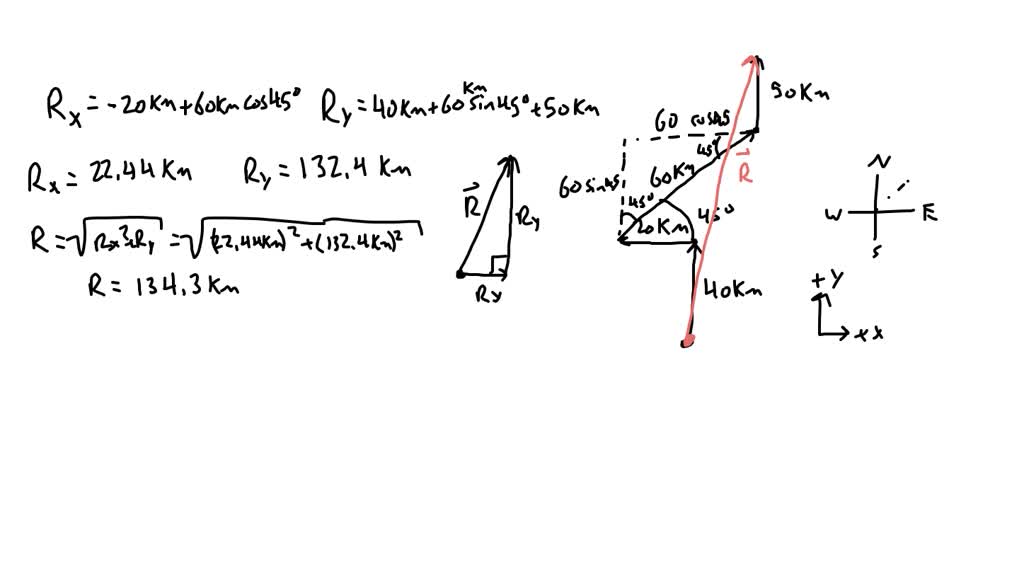 Rx = -20 Km + 60 Km cos 45° Ry = 40 Km + 60 Km sin 45° + 50 Km
Rx = 22.44 Km Ry = 132.4 Km
R = √(Rx² + Ry) = √((22.44 Km)² + (132.4 Km)²)
R = 134.3 Km
R⃗
Ry
Rx
50 Km
60 cos 45
45°
60 sin 45
60 Km
R⃗
45°
45°
20 Km
40 Km
N
W E
S
+Y
+X